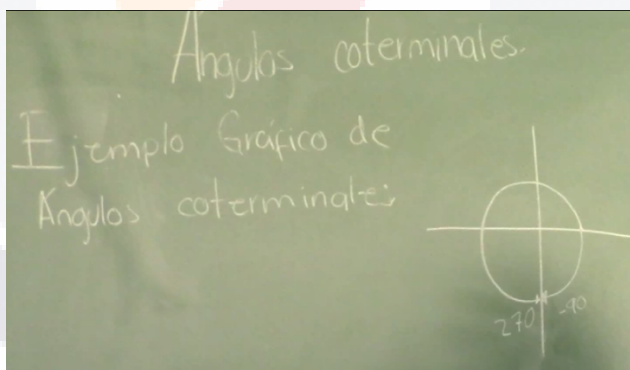 Ángulos coterminales.
Ejemplo Gráfico de
Ángulos coterminales
270 -90